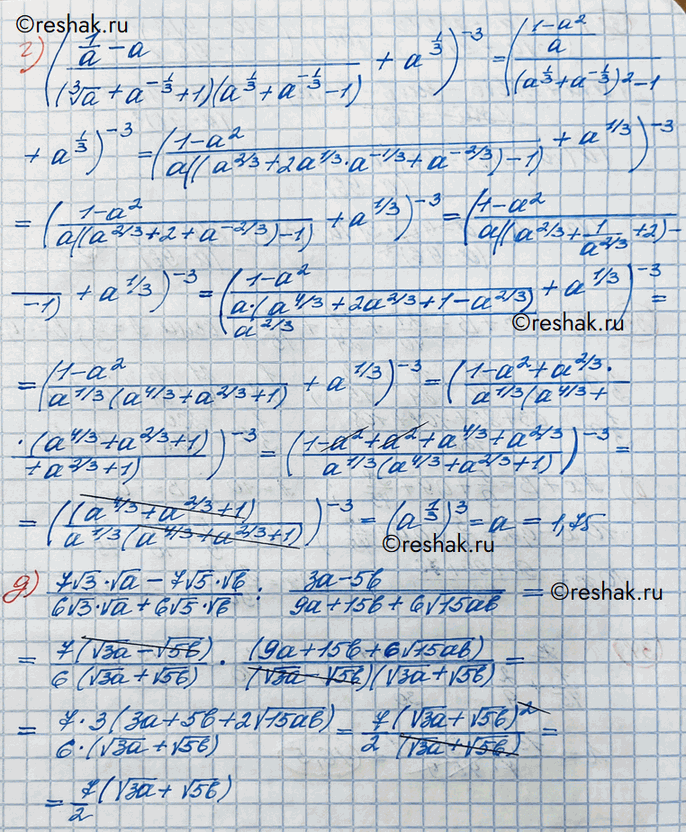 ©reshak.ru
г) ((1/a − a)/((∛a + a^(−1/3) + 1)(a^(1/3) + a^(−1/3) − 1)) + a^(1/3))^(−3) = (((1−a²)/a)/((a^(1/3) + a^(−1/3))² − 1)
+ a^(1/3))^(−3) = ((1−a²)/(a((a^(2/3) + 2a^(1/3)·a^(−1/3) + a^(−2/3)) − 1)) + a^(1/3))^(−3)
= ((1−a²)/(a((a^(2/3) + 2 + a^(−2/3)) − 1)) + a^(1/3))^(−3) = ((1−a²)/(a((a^(2/3) + 1/a^(2/3) + 2) −
−1) + a^(1/3))^(−3) = ((1−a²)/(a·(a^(4/3) + 2a^(2/3) + 1 − a^(2/3))/a^(2/3)) + a^(1/3))^(−3) =
©reshak.ru
= ((1−a²)/(a^(1/3)(a^(4/3) + a^(2/3) + 1)) + a^(1/3))^(−3) = ((1−a² + a^(2/3)·/(a^(1/3)(a^(4/3) +
·(a^(4/3) + a^(2/3) + 1)/+ a^(2/3) + 1))^(−3) = ((1−a² + a² + a^(4/3) + a^(2/3))/(a^(1/3)(a^(4/3) + a^(2/3) + 1)))^(−3) =
= ((a^(4/3) + a^(2/3) + 1)/(a^(1/3)(a^(4/3) + a^(2/3) + 1)))^(−3) = (a^(1/3))^3 = a = 1,75
©reshak.ru
д) (7√3·√a − 7√5·√b)/(6√3·√a + 6√5·√b) : (3a−5b)/(9a+15b+6√15ab) =
©reshak.ru
= 7(√3a − √5b)/(6(√3a + √5b)) · (9a+15b+6√15ab)/((√3a − √5b)(√3a + √5b)) =
= 7·3(3a+5b+2√15ab)/(6·(√3a + √5b)) = 7(√3a + √5b)²/(2(√3a + √5b)) =
= 7/2(√3a + √5b)